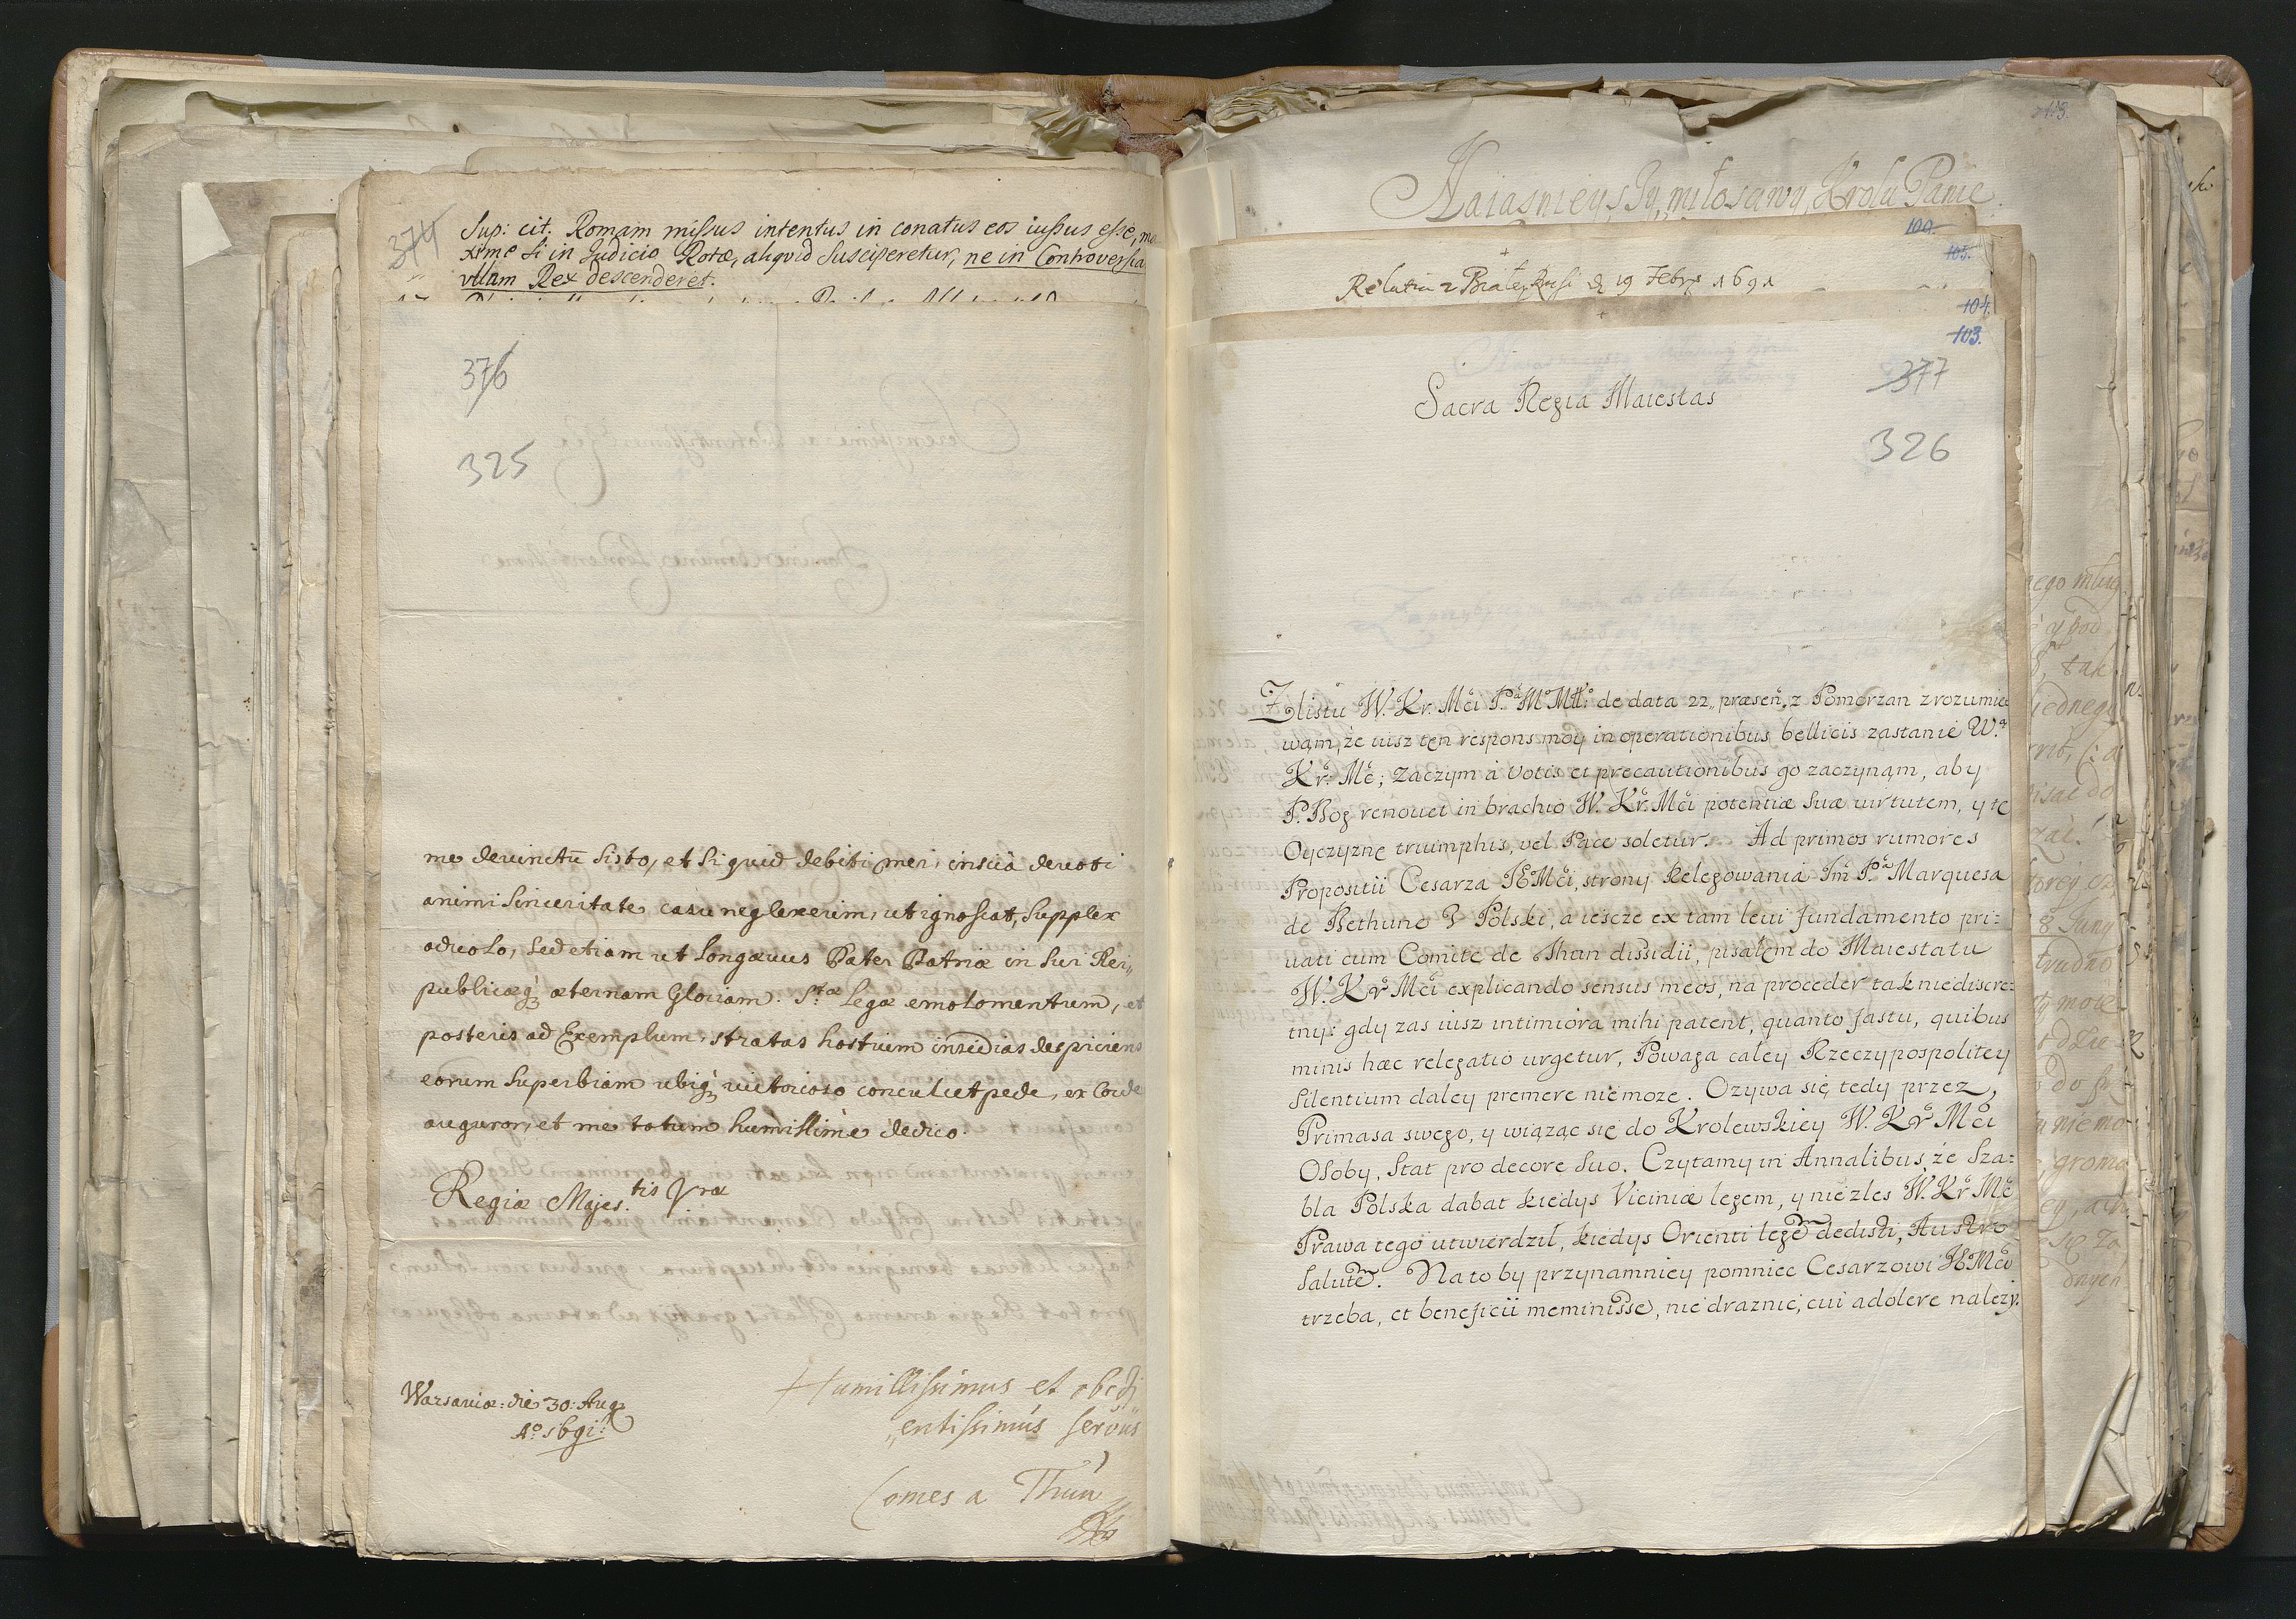 374
Sup: cit. Romam missus intentus in conatus eos iussus esse, ma
xime si in Judicio Rotæ, aliqvid susciperetur, ne in Controversia
ullam Rex descenderet.
376
325
me devinctū sisto, et si quid debiti mei, inscia devoti
animi sinceritate, casu neglexerim, ut ignoscat, supplex
advolo, sed etiam ut longævus Pater Patriæ in sui Rei,,
publicæq; æternam Gloriam. S.tæ Legæ emolomentum, et
posteris ad Exemplum, stratas hostium insidias despiciens
eorum superbiam ubiq; victorioso conculcet pede, ex Corde
auguror, et me totum humillime dedico.
Regiæ Majes.tis Vræ
Warsaviæ: die 30. Aug
Aº 1691.
Humillissimus et obedi
,,entissimus servus
Comes a Thun
103.
Naiasnieyszy, miłosciwy, Krolu Panie.
100.
105.
Relatia z Białey Rusi d 19 Febr 1691
104.
103.
377
Sacra Regia Maiestas
326
Z listu W. Kr. Mći P.ª M. Mł: de data 22, præsen, z Pomorzan zrozumie
wam, że iusz ten respons moy in operationibus bellicis zastanie W.ª
Kr. Mć; zaczym à votis et precautionibus go zaczynąm, aby
P. Bog renouet in brachio W. Kr. Mći potentiæ suæ uirtutem, y tę
Oyczyznę triumphis, vel Pace soletur. Ad primos rumores
Propositii Cesarza JEMći, strony Relegowania Jm̃ P.ª Marquesa
de Bethune z Polski, a iescze ex tam leui fundamento pri=
uati cum Comite de Thun dissidii, pisałem do Maiestatu
W. Kr Mći explicando sensus meos, na proceder tak niediscre=
tny: gdy zas iusz intimiora mihi patent, quanto fastu, quibus
minis hæc relegatio urgetur, Powaga całey Rzeczypospolitey
silentium daley premere niemoze. Ozywa się tedy przez
Primasa swego, y wiąząc się do Krolewskiey W. Kr Mći
Osoby, stat pro decore suo. Czytamy in Annalibus, że Sza=
bla Polska dabat kiedys Viciniæ legem, y nie zles W. Kr Mć
Prawa tego utwierdził, kiedys Orienti legẽ dedisti, Austriæ
salutẽ. Na to by przynamniey pomniec Cesarzowi JEMći
trzeba, et beneficii meminisse, nie draznic, cui adolere nalezy.